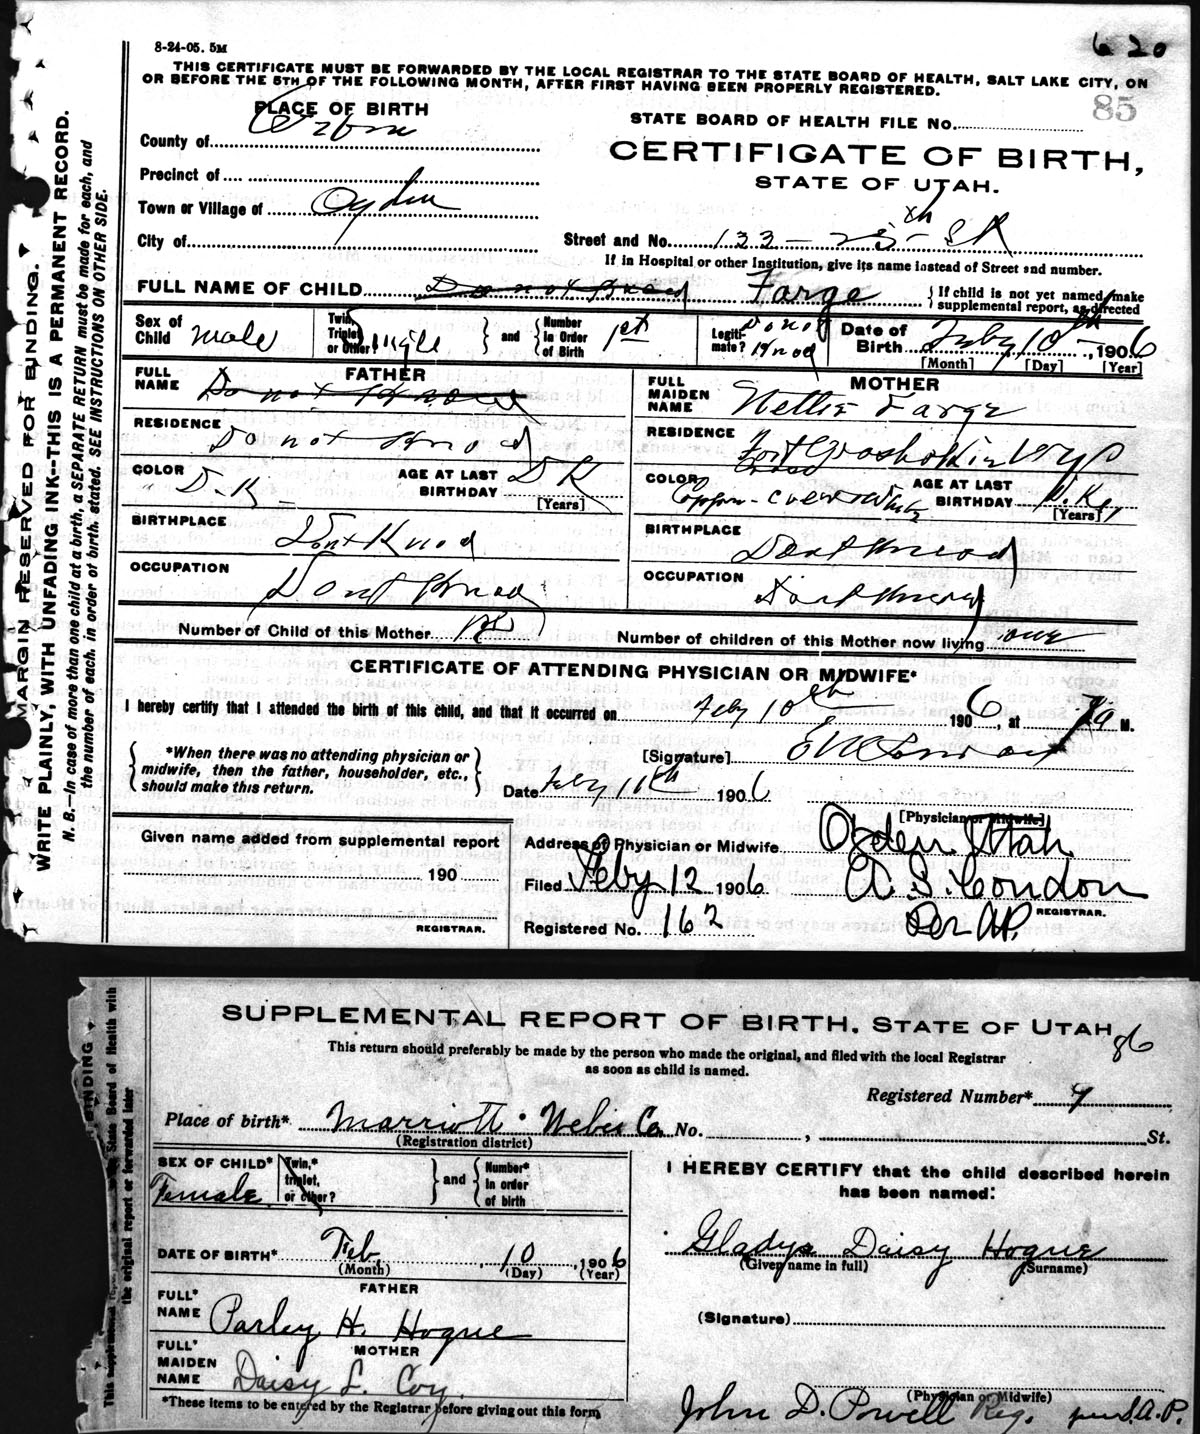 8-24-05. 5M
620
THIS CERTIFICATE MUST BE FORWARDED BY THE LOCAL REGISTRAR TO THE STATE BOARD OF HEALTH, SALT LAKE CITY, ON
OR BEFORE THE 5TH OF THE FOLLOWING MONTH, AFTER FIRST HAVING BEEN PROPERLY REGISTERED.
85
PLACE OF BIRTH
STATE BOARD OF HEALTH FILE No.
County of
CERTIFICATE OF BIRTH,
STATE OF UTAH.
Precinct of
Town or Village of Ogden
City of
Street and No. 133 - 25th St
If in Hospital or other Institution, give its name instead of Street and number.
FULL NAME OF CHILD Farge { If child is not yet named, make
supplemental report, as directed
Sex of Child male
Twin, Triplet, or Other? Single } and { Number in Order of Birth 1st
Legiti-mate? Do not Knod
Date of Birth Feby 10th, 1906
[Month] [Day] [Year]
FATHER
FULL NAME Do not Knod
RESIDENCE Do not Knod
COLOR D.K. AGE AT LAST BIRTHDAY DK
[Years]
BIRTHPLACE Dont Knod
OCCUPATION Dont Knod
MOTHER
FULL MAIDEN NAME Nettie Farge
RESIDENCE Fort
COLOR
AGE AT LAST BIRTHDAY D.K.
[Years]
BIRTHPLACE Dont Knod
OCCUPATION Dont Knod
Number of Child of this Mother 1st Number of children of this Mother now living one
CERTIFICATE OF ATTENDING PHYSICIAN OR MIDWIFE*
I hereby certify that I attended the birth of this child, and that it occurred on Feby 10th 1906, at 7 a M.
{ *When there was no attending physician or
midwife, then the father, householder, etc.,
should make this return. }
[Signature]
Date Feby 11th 1906
[Physician or Midwife]
Given name added from supplemental report
190
REGISTRAR.
Address of Physician or Midwife Ogden Utah
Filed Feby 12 1906 A. S. Condon
REGISTRAR.
Registered No. 162 Per A.P.
MARGIN RESERVED FOR BINDING.
WRITE PLAINLY, WITH UNFADING INK--THIS IS A PERMANENT RECORD.
N. B.—In case of more than one child at a birth, a SEPARATE RETURN must be made for each, and
the number of each, in order of birth, stated. SEE INSTRUCTIONS ON OTHER SIDE.
SUPPLEMENTAL REPORT OF BIRTH, STATE OF UTAH
86
This return should preferably be made by the person who made the original, and filed with the local Registrar
as soon as child is named.
Registered Number* 7
Place of birth* Marriott Weber Co No. , St.
(Registration district)
SEX OF CHILD* Female
Twin,* triplet, or other? } and { Number* in order of birth
I HEREBY CERTIFY that the child described herein
has been named:
DATE OF BIRTH* Feb. 10, 1906
(Month) (Day) (Year)
Gladys Daisy Hogue
(Given name in full) (Surname)
FATHER
FULL* NAME Parley H. Hogue
(Signature)
MOTHER
FULL* MAIDEN NAME Daisy L. Coy.
(Physician or Midwife)
*These items to be entered by the Registrar before giving out this form
John D. Powell Reg. per S.A.P.
BINDING
State Board of Health with
the original report or forwarded later